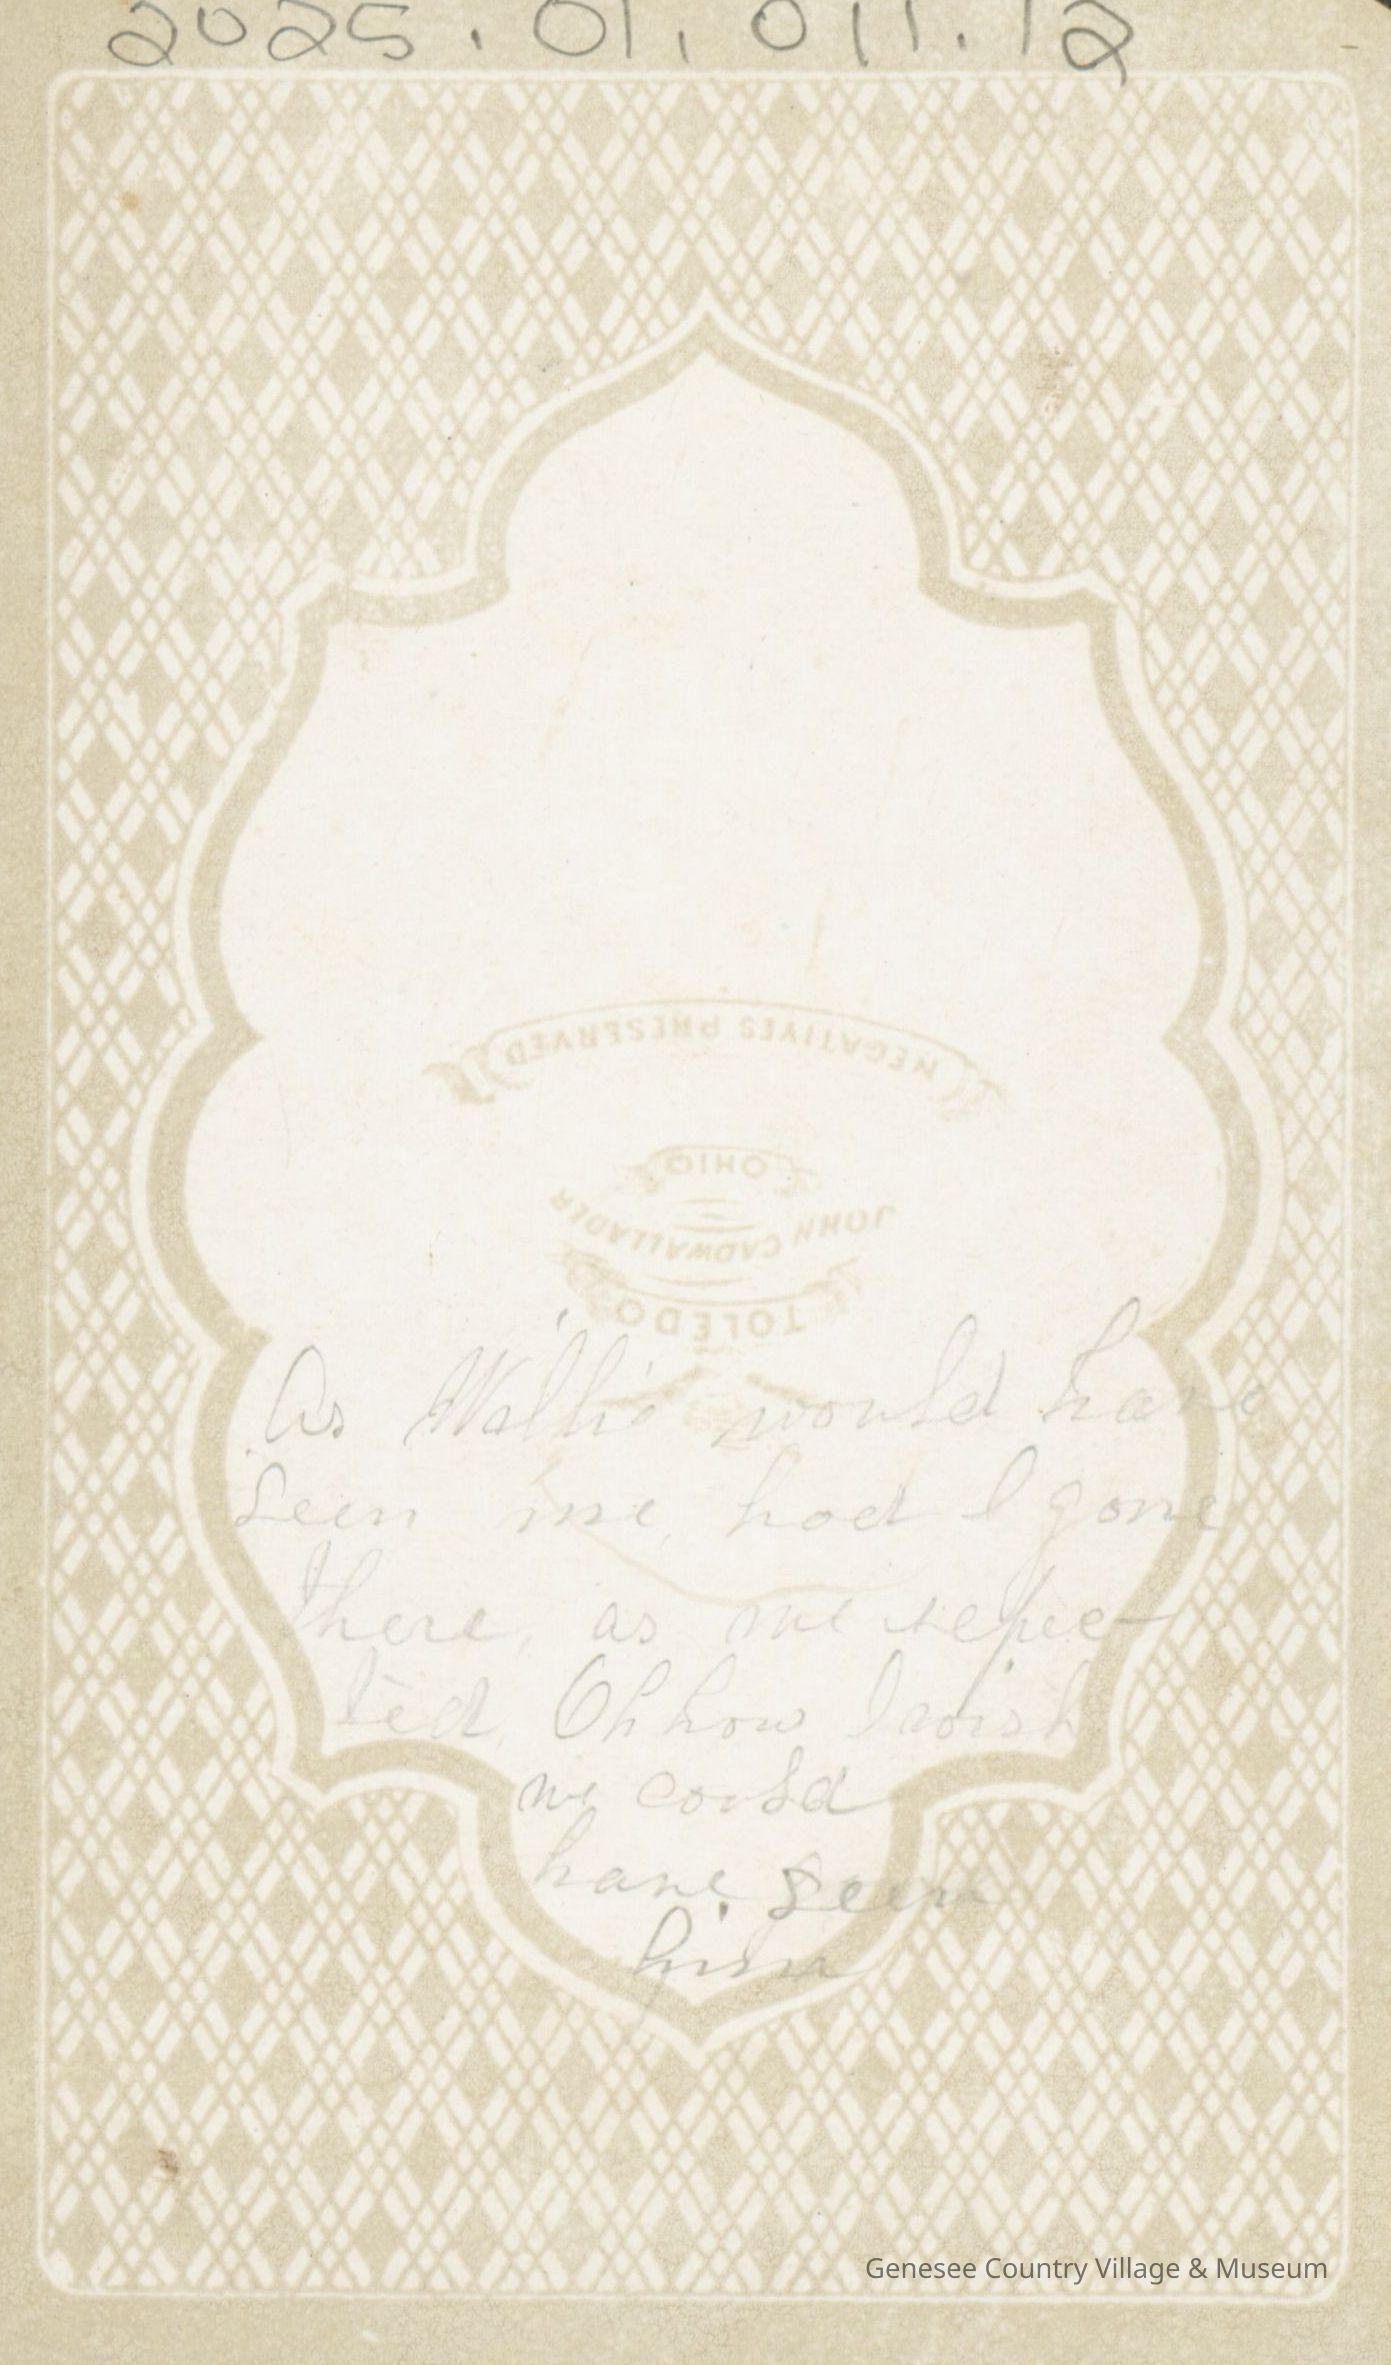 2025.01.011.12
NEGATIVES PRESERVED
OHIO
JOHN CADWALLADER
TOLEDO
As Willie would have
seen me, had I gone
there, as we expec-
ted. Oh how I wish
we could
have seen
him
Genesee Country Village & Museum